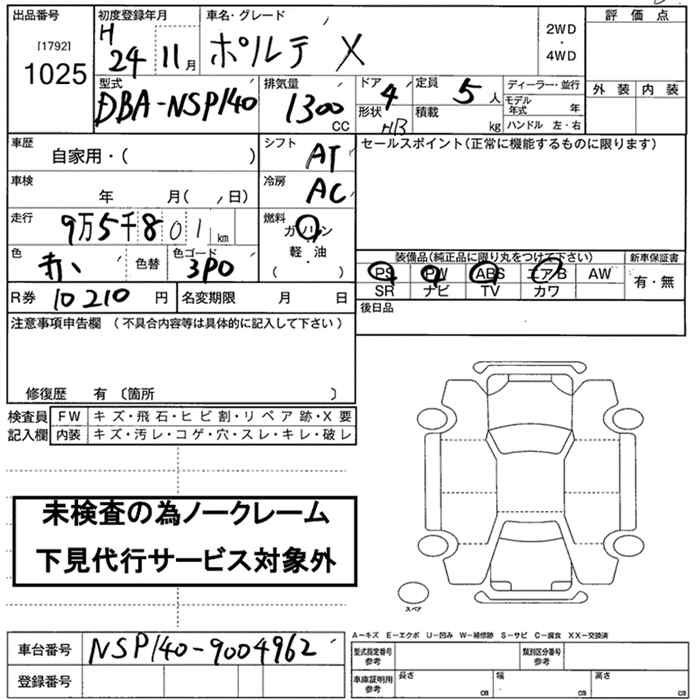 出品番号
[1792]
1025
初度登録年月
H
24 11 月
車名・グレード
ポルテ X
2WD
・
4WD
評価点
外装 内装
型式
DBA-NSP140
排気量
1300
CC
ドア 4
形状 HB
定員 5 人
積載 kg
ディーラー・並行
モデル年式 年
ハンドル 左・右
車歴
自家用・( )
シフト
AT
車検
年 月( , 日)
冷房
AC
走行
9万5千801 km
燃料
ガソリン
軽・油
色
赤、
色替
色コード
3P0
R券 10210 円
名変期限 月 日
セールスポイント(正常に機能するものに限ります)
装備品(純正品に限り丸をつけて下さい)
PS PW ABS エアB AW
SR ナビ TV カワ
新車保証書
有・無
後日品
注意事項申告欄 (不具合内容等は具体的に記入して下さい)
修復歴 有 〔箇所 〕
検査員
記入欄
FW キズ・飛石・ヒビ割・リペア跡・X要
内装 キズ・汚レ・コゲ・穴・スレ・キレ・破レ
未検査の為ノークレーム
下見代行サービス対象外
スペア
A-キズ E-エクボ U-凹み W-補修跡 S-サビ C-腐食 XX-交換済
車台番号 NSP140-9004962
登録番号
型式指定番号
参考
類別区分番号
参考
車庫証明用
参考
長さ cm
幅 cm
高さ cm